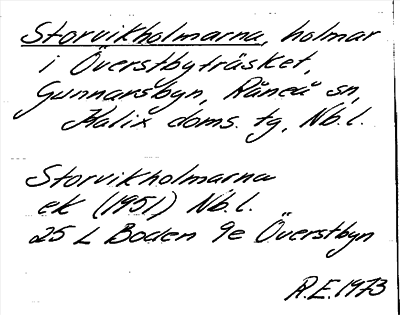 Storvikholmarna, holmar
i Överstbyträsket,
Gunnarsbyn, Råneå sn,
Kalix doms. tg, Nb. l.
Storvikholmarna
ek (1951) Nb. l.
25 L Boden 9e Överstbyn
R.E. 1973